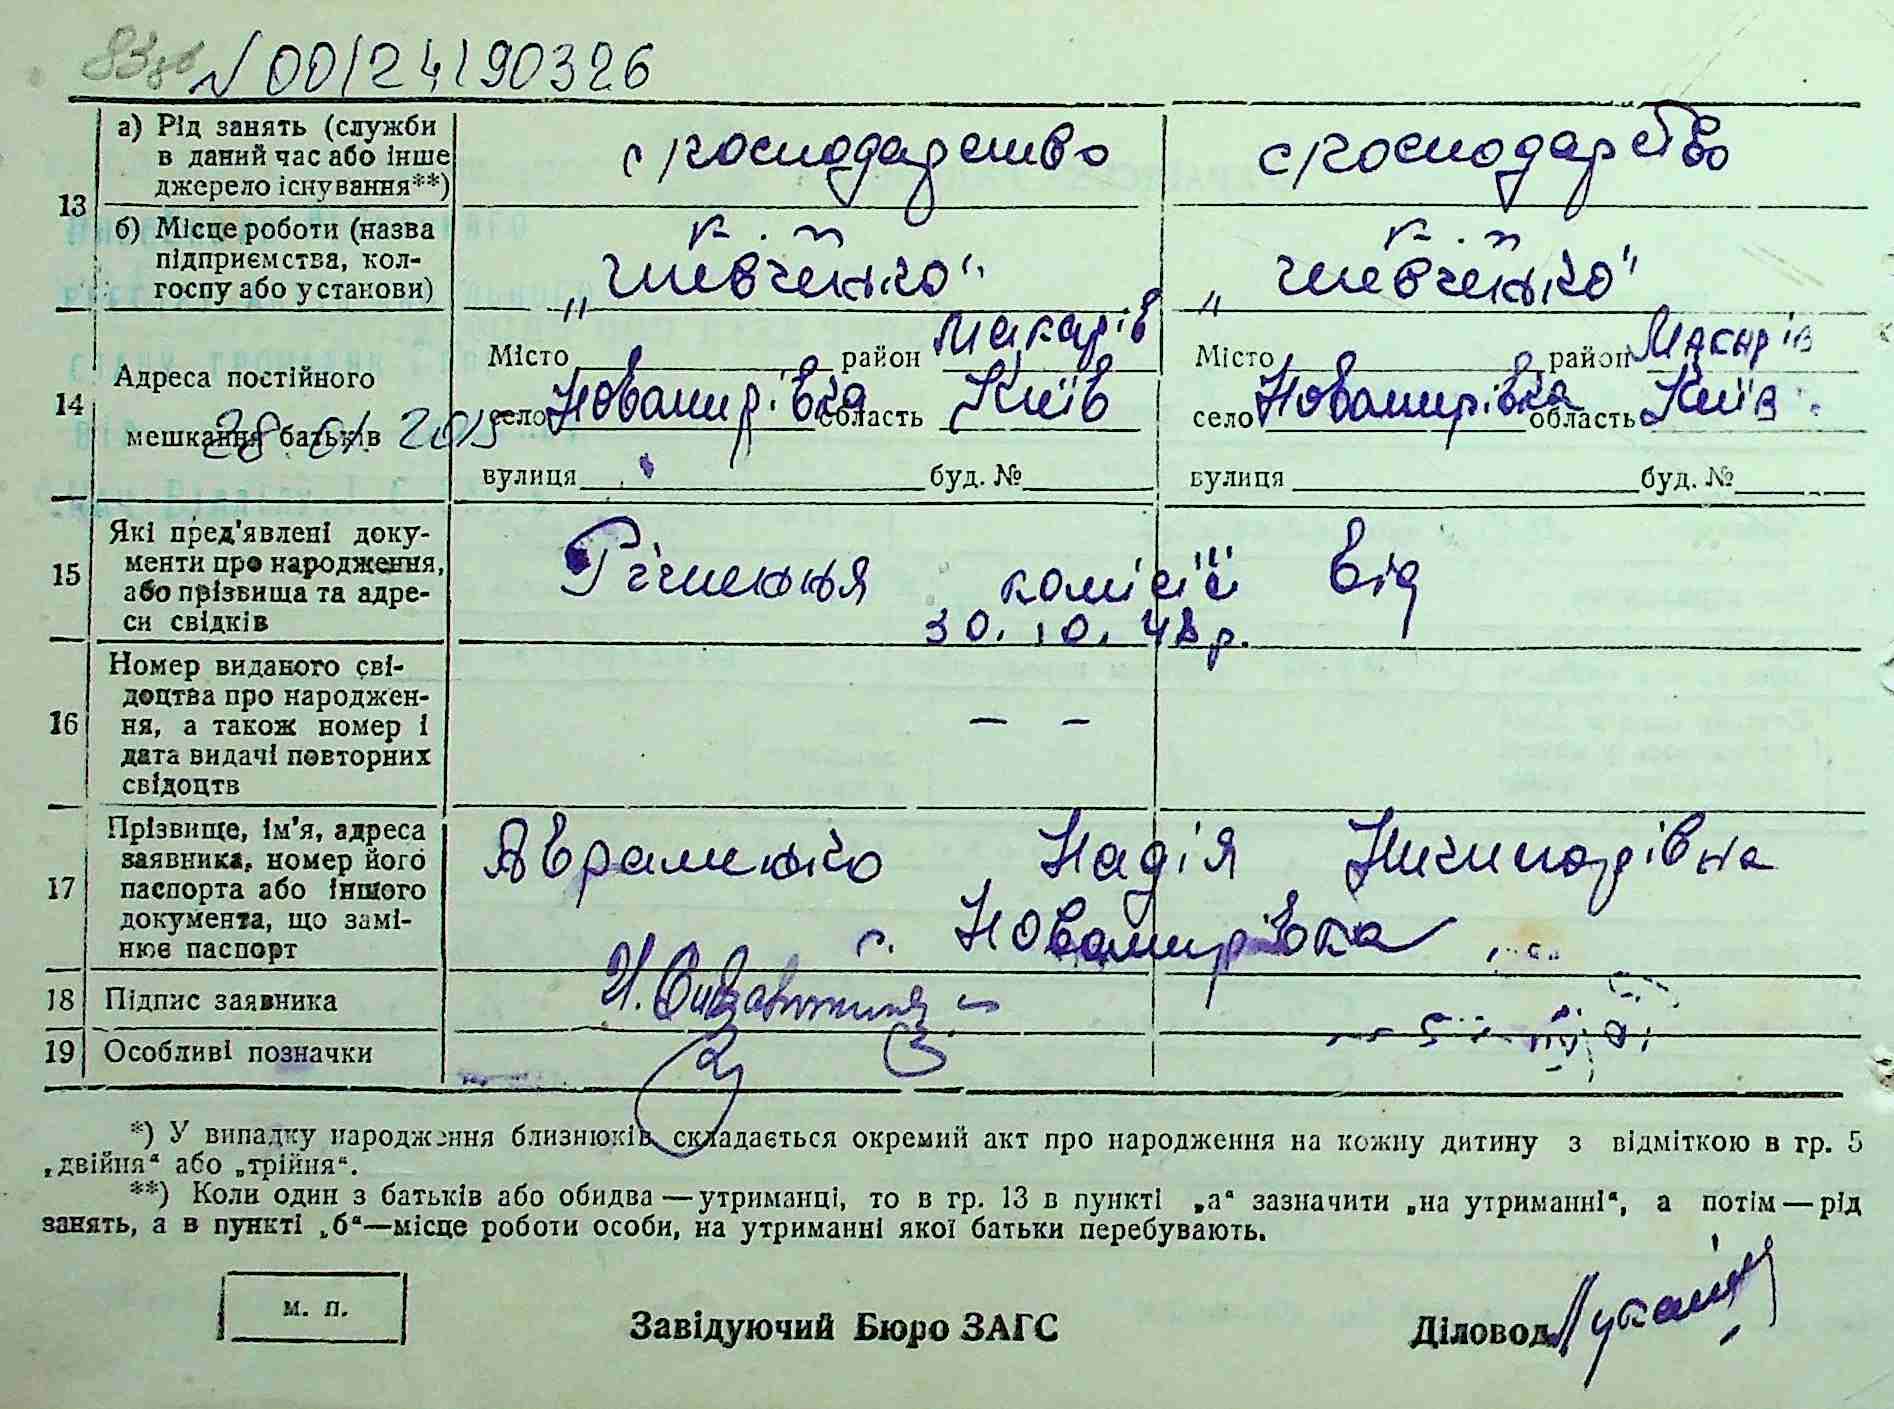 N 00124190326
13 а) Рід занять (служби с господарство с господарство
в даний час або інше
джерело існування**)
б) Місце роботи (назва к. п. к. п.
підприємства, кол- „Шевченко" „Шевченко"
госпу або установи)
14 Адреса постійного Місто район Макарів Місто район Макарів
мешкання батьків село Новомирівка область Київ село Новомирівка область Київ
28 01 2015
вулиця буд. № вулиця буд. №
15 Які пред'явлені доку- Рішення комісії від
менти про народження, 30. 10. 48 р.
або прізвища та адре-
си свідків
16 Номер виданого сві-
доцтва про народжен-
ня, а також номер і — —
дата видачі повторних
свідоцтв
17 Прізвище, ім'я, адреса Авраменко Надія Ничипорівна
заявника, номер його с. Новомирівка
паспорта або іншого
документа, що замі-
нює паспорт
18 Підпис заявника
19 Особливі позначки
*) У випадку народження близнюків складається окремий акт про народження на кожну дитину з відміткою в гр. 5
„двійня“ або „трійня“.
**) Коли один з батьків або обидва — утриманці, то в гр. 13 в пункті „а“ зазначити „на утриманні“, а потім — рід
занять, а в пункті „б“—місце роботи особи, на утриманні якої батьки перебувають.
м. п.
Завідуючий Бюро ЗАГС Діловод